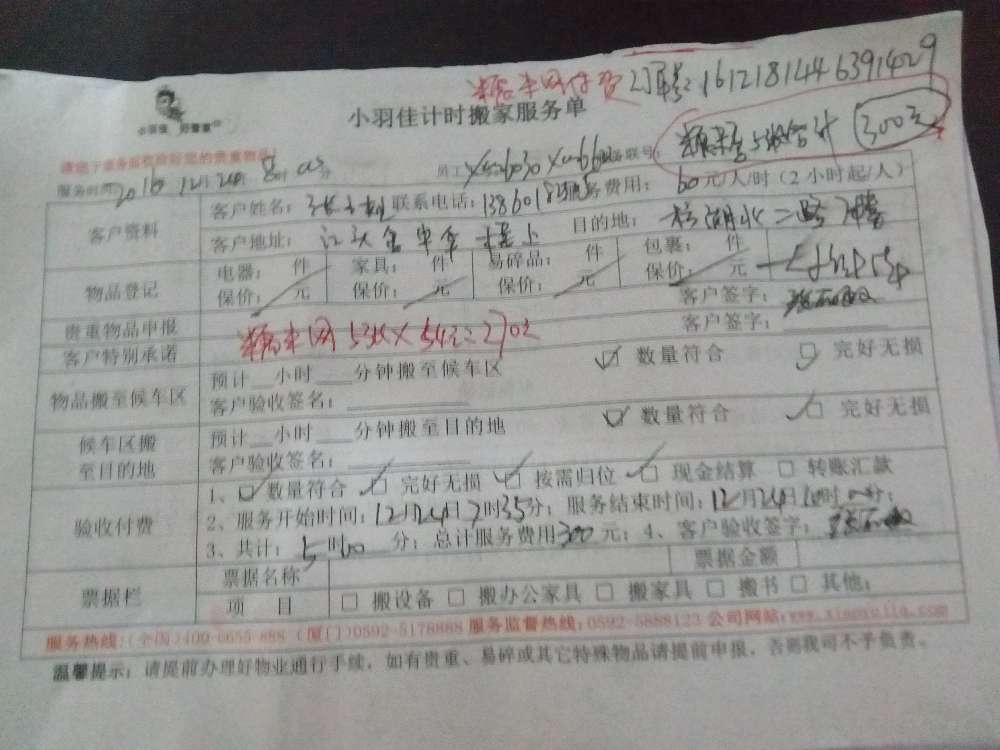 订单:16121814463914029
小羽佳计时搬家服务单
小羽佳 好管家
300元
请您于服务后收捡好您的贵重物品!
服务时间:2016 12月24日8时00分 员工 服务联号:
客户资料 客户姓名: 联系电话: 服务费用:60元/人/时(2小时起/人)
客户地址:江头 目的地:
物品登记 电器: 件 家具: 件 易碎品: 件 包裹: 件
保价: 元 保价: 元 保价: 元 保价: 元
贵重物品申报 客户签字:
客户特别承诺 5张×54元=270元 客户签字:
物品搬至候车区 预计__小时___分钟搬至候车区 ☑数量符合 ☑完好无损
客户验收签名:
候车区搬至目的地 预计__小时___分钟搬至目的地 ☑数量符合 ☑完好无损
客户验收签名:
验收付费 1、☑数量符合 ☑完好无损 ☑按需归位 ☑现金结算 □转账汇款
2、服务开始时间:12月24日7时35分;服务结束时间:12月24日10时 分;
3、共计:5时00分;总计服务费用300元;4、客户验收签字:
票据栏 票据名称 票据金额
项 目 □搬设备 □搬办公家具 □搬家具 □搬书 □其他:
服务热线:(全国)400-6655-888 (厦门)0592-5178888 服务监督热线:0592-5888123 公司网站:www.xiaoyujia.com
温馨提示:请提前办理好物业通行手续,如有贵重、易碎或其它特殊物品请提前申报,否则我司不予负责。